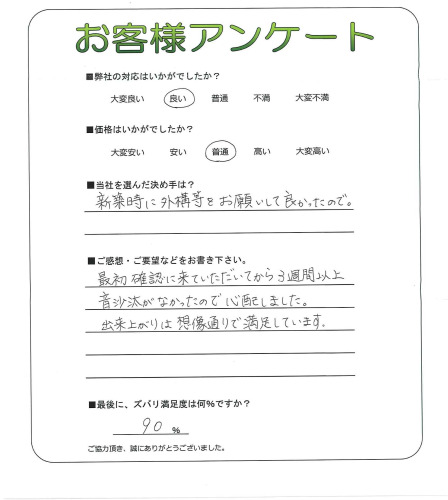 お客様アンケート
■弊社の対応はいかがでしたか?
大変良い 良い 普通 不満 大変不満
■価格はいかがでしたか?
大変安い 安い 普通 高い 大変高い
■当社を選んだ決め手は?
新築時に外構等をお願いして良かったので。
■ご感想・ご要望などをお書き下さい。
最初確認に来ていただいてから3週間以上
音沙汰がなかったので心配しました。
出来上がりは想像通りで満足しています。
■最後に、ズバリ満足度は何%ですか?
90 %
ご協力頂き、誠にありがとうございました。